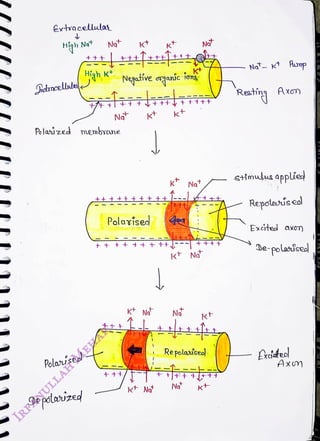 Extracellular
High Na⁺ Na⁺ K⁺ K⁺ Na⁺
+ + + + + + + + +
Na⁺- K⁺ Pump
High K⁺ Negative organic ions K⁺
Intracellular
Resting Axon
+ + + + + + + + + +
Na⁺ K⁺ K⁺
Polarized membrane
K⁺ Na⁺ stimulus applied
+ + + + + + + + +
Repolarised
Polarised
Excited axon
De-polarised
+ + + + + + + + +
K⁺ Na⁺
K⁺ Na⁺ Na⁺ K⁺
+ + + + + + +
Polarised Repolarised Excited Axon
+ + + + + + + +
K⁺ Na⁺ Na⁺ K⁺
Depolarized
IRFANULLAH MEHAR